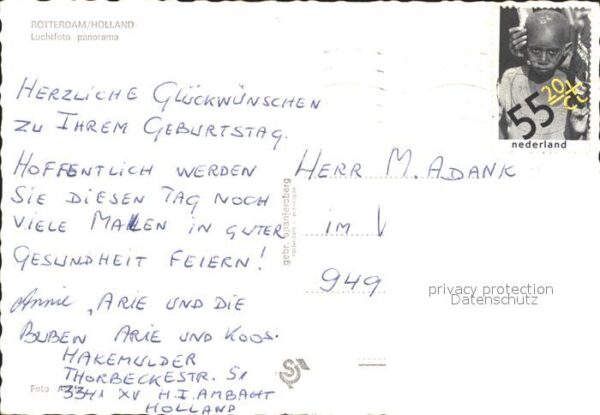 ROTTERDAM/HOLLAND
Luchtfoto panorama
HERZLICHE GLÜCKWÜNSCHEN
ZU IHREM GEBURTSTAG.
HOFFENTLICH WERDEN
SIE DIESEN TAG NOCH
VIELE MALEN IN GUTER
GESUNDHEIT FEIERN!
Annie, ARIE UND DIE
BUBEN ARIE UND KOOS.
HAKEMULDER
THORBECKESTR. 51
3341 XV H.I. AMBACHT
HOLLAND
Foto
gebr. spanjersberg
HERR M. ADANK
IM
949
55
20
nederland
privacy protection
Datenschutz